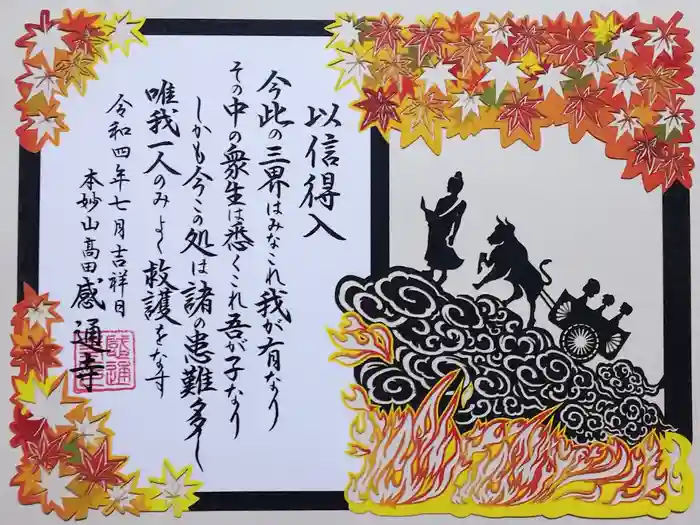 以信得入
今此の三界はみなこれ我が有なり
その中の衆生は悉くこれ吾が子なり
しかも今この処は諸の患難多し
唯我一人のみよく救護をなす
令和四年七月吉祥日
本妙山高田感通寺
感通